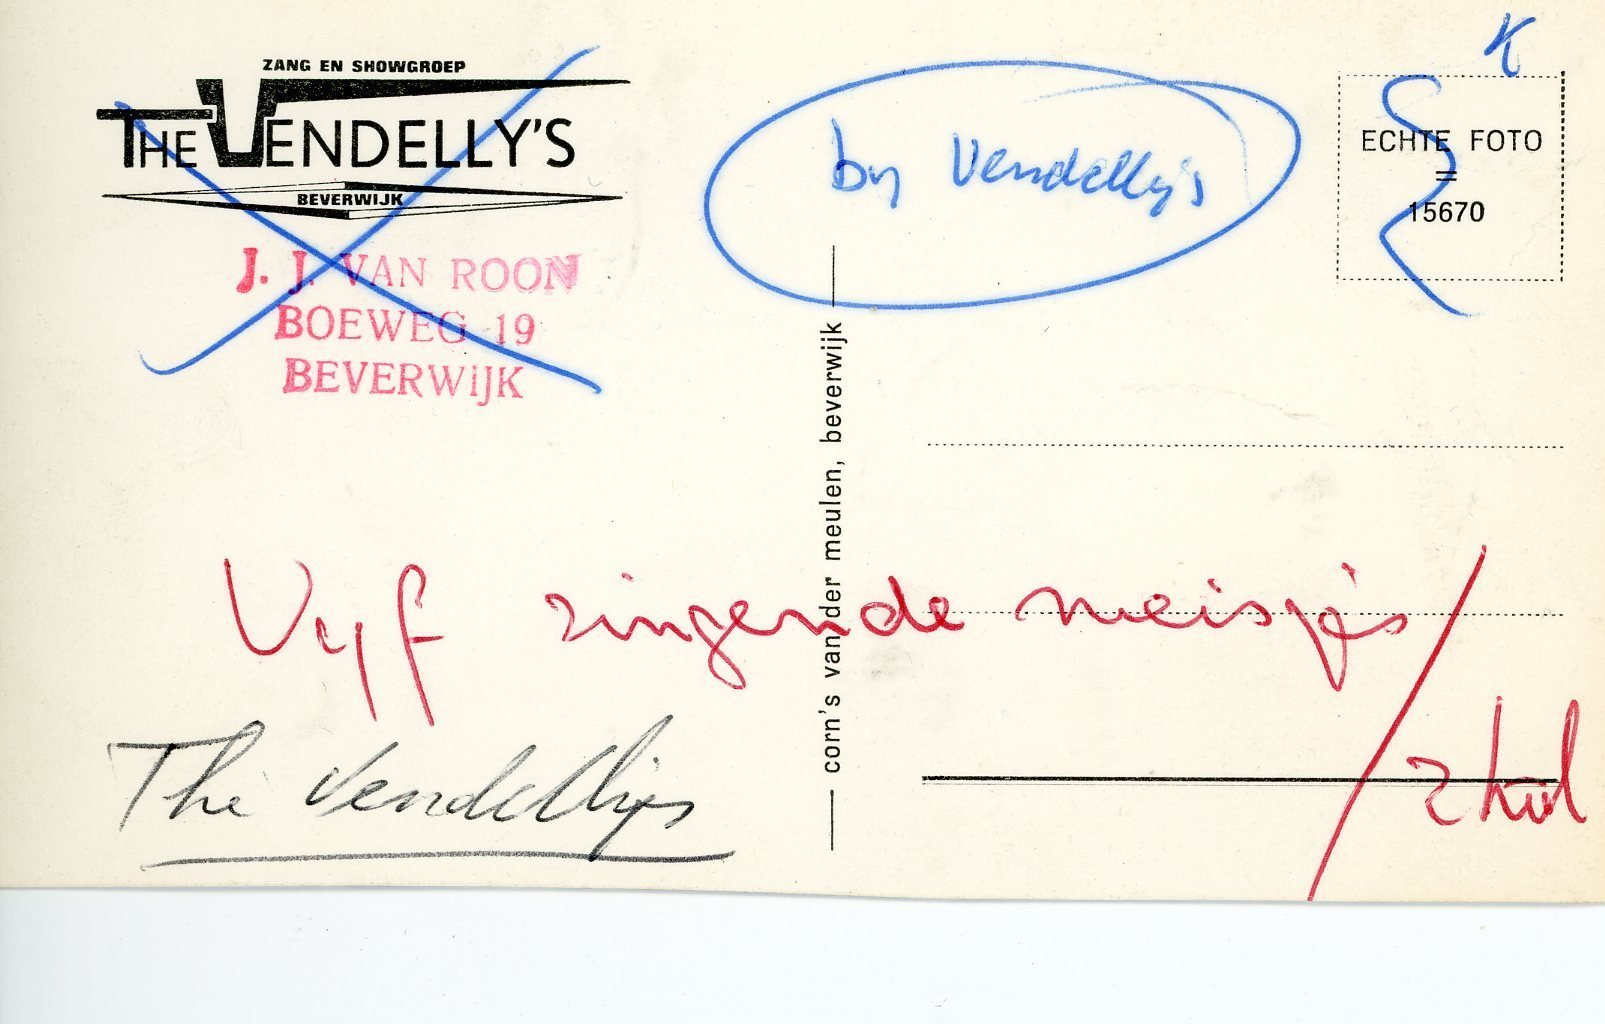 ZANG EN SHOWGROEP
THE VENDELLY'S
BEVERWIJK
J. J. VAN ROON
BOEWEG 19
BEVERWIJK
by Vendelly's
K
ECHTE FOTO
=
15670
corn's van der meulen, beverwijk
Vyf zingende meisjes/
2 kol
The Vendellys